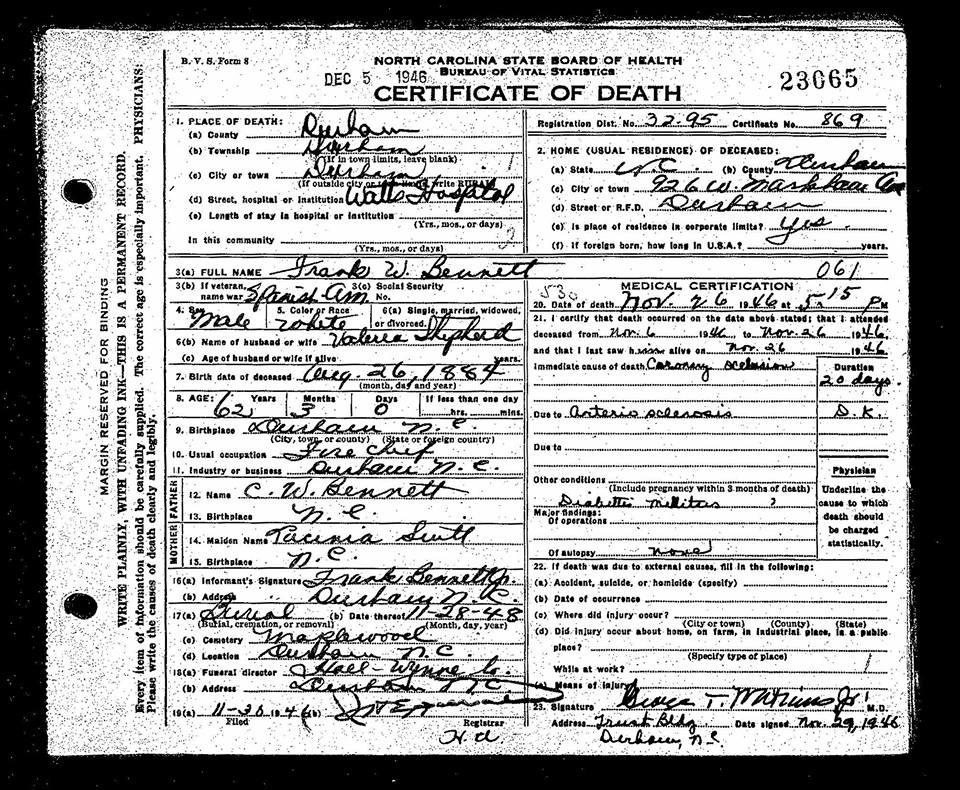 B. V. S. Form 8
NORTH CAROLINA STATE BOARD OF HEALTH
BUREAU OF VITAL STATISTICS
DEC 5 1946
CERTIFICATE OF DEATH
23065
MARGIN RESERVED FOR BINDING
WRITE PLAINLY, WITH UNFADING INK—THIS IS A PERMANENT RECORD.
Every item of information should be carefully supplied. The correct age is especially important. PHYSICIANS:
Please write the causes of death clearly and legibly.
1. PLACE OF DEATH:
(a) County Durham
(b) Township Durham
(If in town limits, leave blank)
(c) City or town Durham
(If outside city or town limits, write RURAL)
(d) Street, hospital or institution Watts Hospital
(e) Length of stay in hospital or institution
(Yrs., mos., or days)
In this community
(Yrs., mos., or days)
Registration Dist. No. 32-95 Certificate No. 869
2. HOME (USUAL RESIDENCE) OF DECEASED:
(a) State N.C (b) County Durham
(c) City or town 926 W. Markham Ave
(d) Street or R.F.D. Durham
(e) Is place of residence in corporate limits? Yes
(f) If foreign born, how long in U.S.A.? years.
3(a) FULL NAME Frank W. Bennett
061
3(b) If veteran, name war Spanish Am 3(c) Social Security No.
4. Sex Male 5. Color or Race White 6(a) Single, married, widowed, or divorced.
6(b) Name of husband or wife Valeria Shepherd
(c) Age of husband or wife if alive years.
7. Birth date of deceased Aug. 26, 1884
(month, day and year)
8. AGE: Years 62 Months 3 Days 0 If less than one day hrs. mins.
9. Birthplace Durham N.C.
(City, town, or county) (State or foreign country)
10. Usual occupation Fire Chief
11. Industry or business Durham N.C.
FATHER
12. Name C. W. Bennett
13. Birthplace N.C.
MOTHER
14. Maiden Name
15. Birthplace N.C.
16(a) Informant's Signature Frank Bennett Jr.
(b) Address Durham N.C.
17(a) Burial (b) Date thereof 11-28-48
(Burial, cremation, or removal) (Month, day, year)
(c) Cemetery Maplewood
(d) Location Durham N.C.
18(a) Funeral director Hall Wynne Co
(b) Address Durham N.C.
19(a) 11-30 1946 (b)
Filed Registrar
MEDICAL CERTIFICATION
20. Date of death Nov 26 1946 at 5 15 P M
21. I certify that death occurred on the date above stated; that I attended
deceased from Nov. 6 1946 to Nov. 26 1946
and that I last saw him alive on Nov. 26 1946
Immediate cause of death Coronary occlusion
Duration
20 days
Due to Arterio sclerosis D.K.
Due to
Other conditions
(Include pregnancy within 3 months of death)
Diabetes Mellitus ?
Major findings:
Of operations
Of autopsy none
Physician
Underline the cause to which death should be charged statistically.
22. If death was due to external causes, fill in the following:
(a) Accident, suicide, or homicide (specify)
(b) Date of occurrence
(c) Where did injury occur?
(City or town) (County) (State)
(d) Did injury occur about home, on farm, in industrial place, in a public
place?
(Specify type of place)
While at work?
(e) Means of injury
23. Signature George T. M.D.
Address Trust Bldg Date signed Nov. 29, 1946
Durham, N.C.